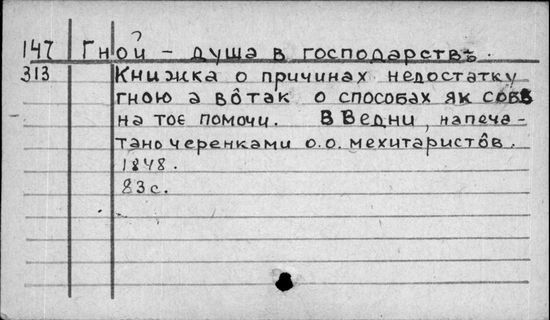 147 Гной – душа в господарствѣ.
313 Книжка о причинах недостатку
гною а вôтак о способах як собѣ
на тоє помочи. В Ведни, напеча-
тано черенками о.о. мехитаристôв.
1848.
83 с.